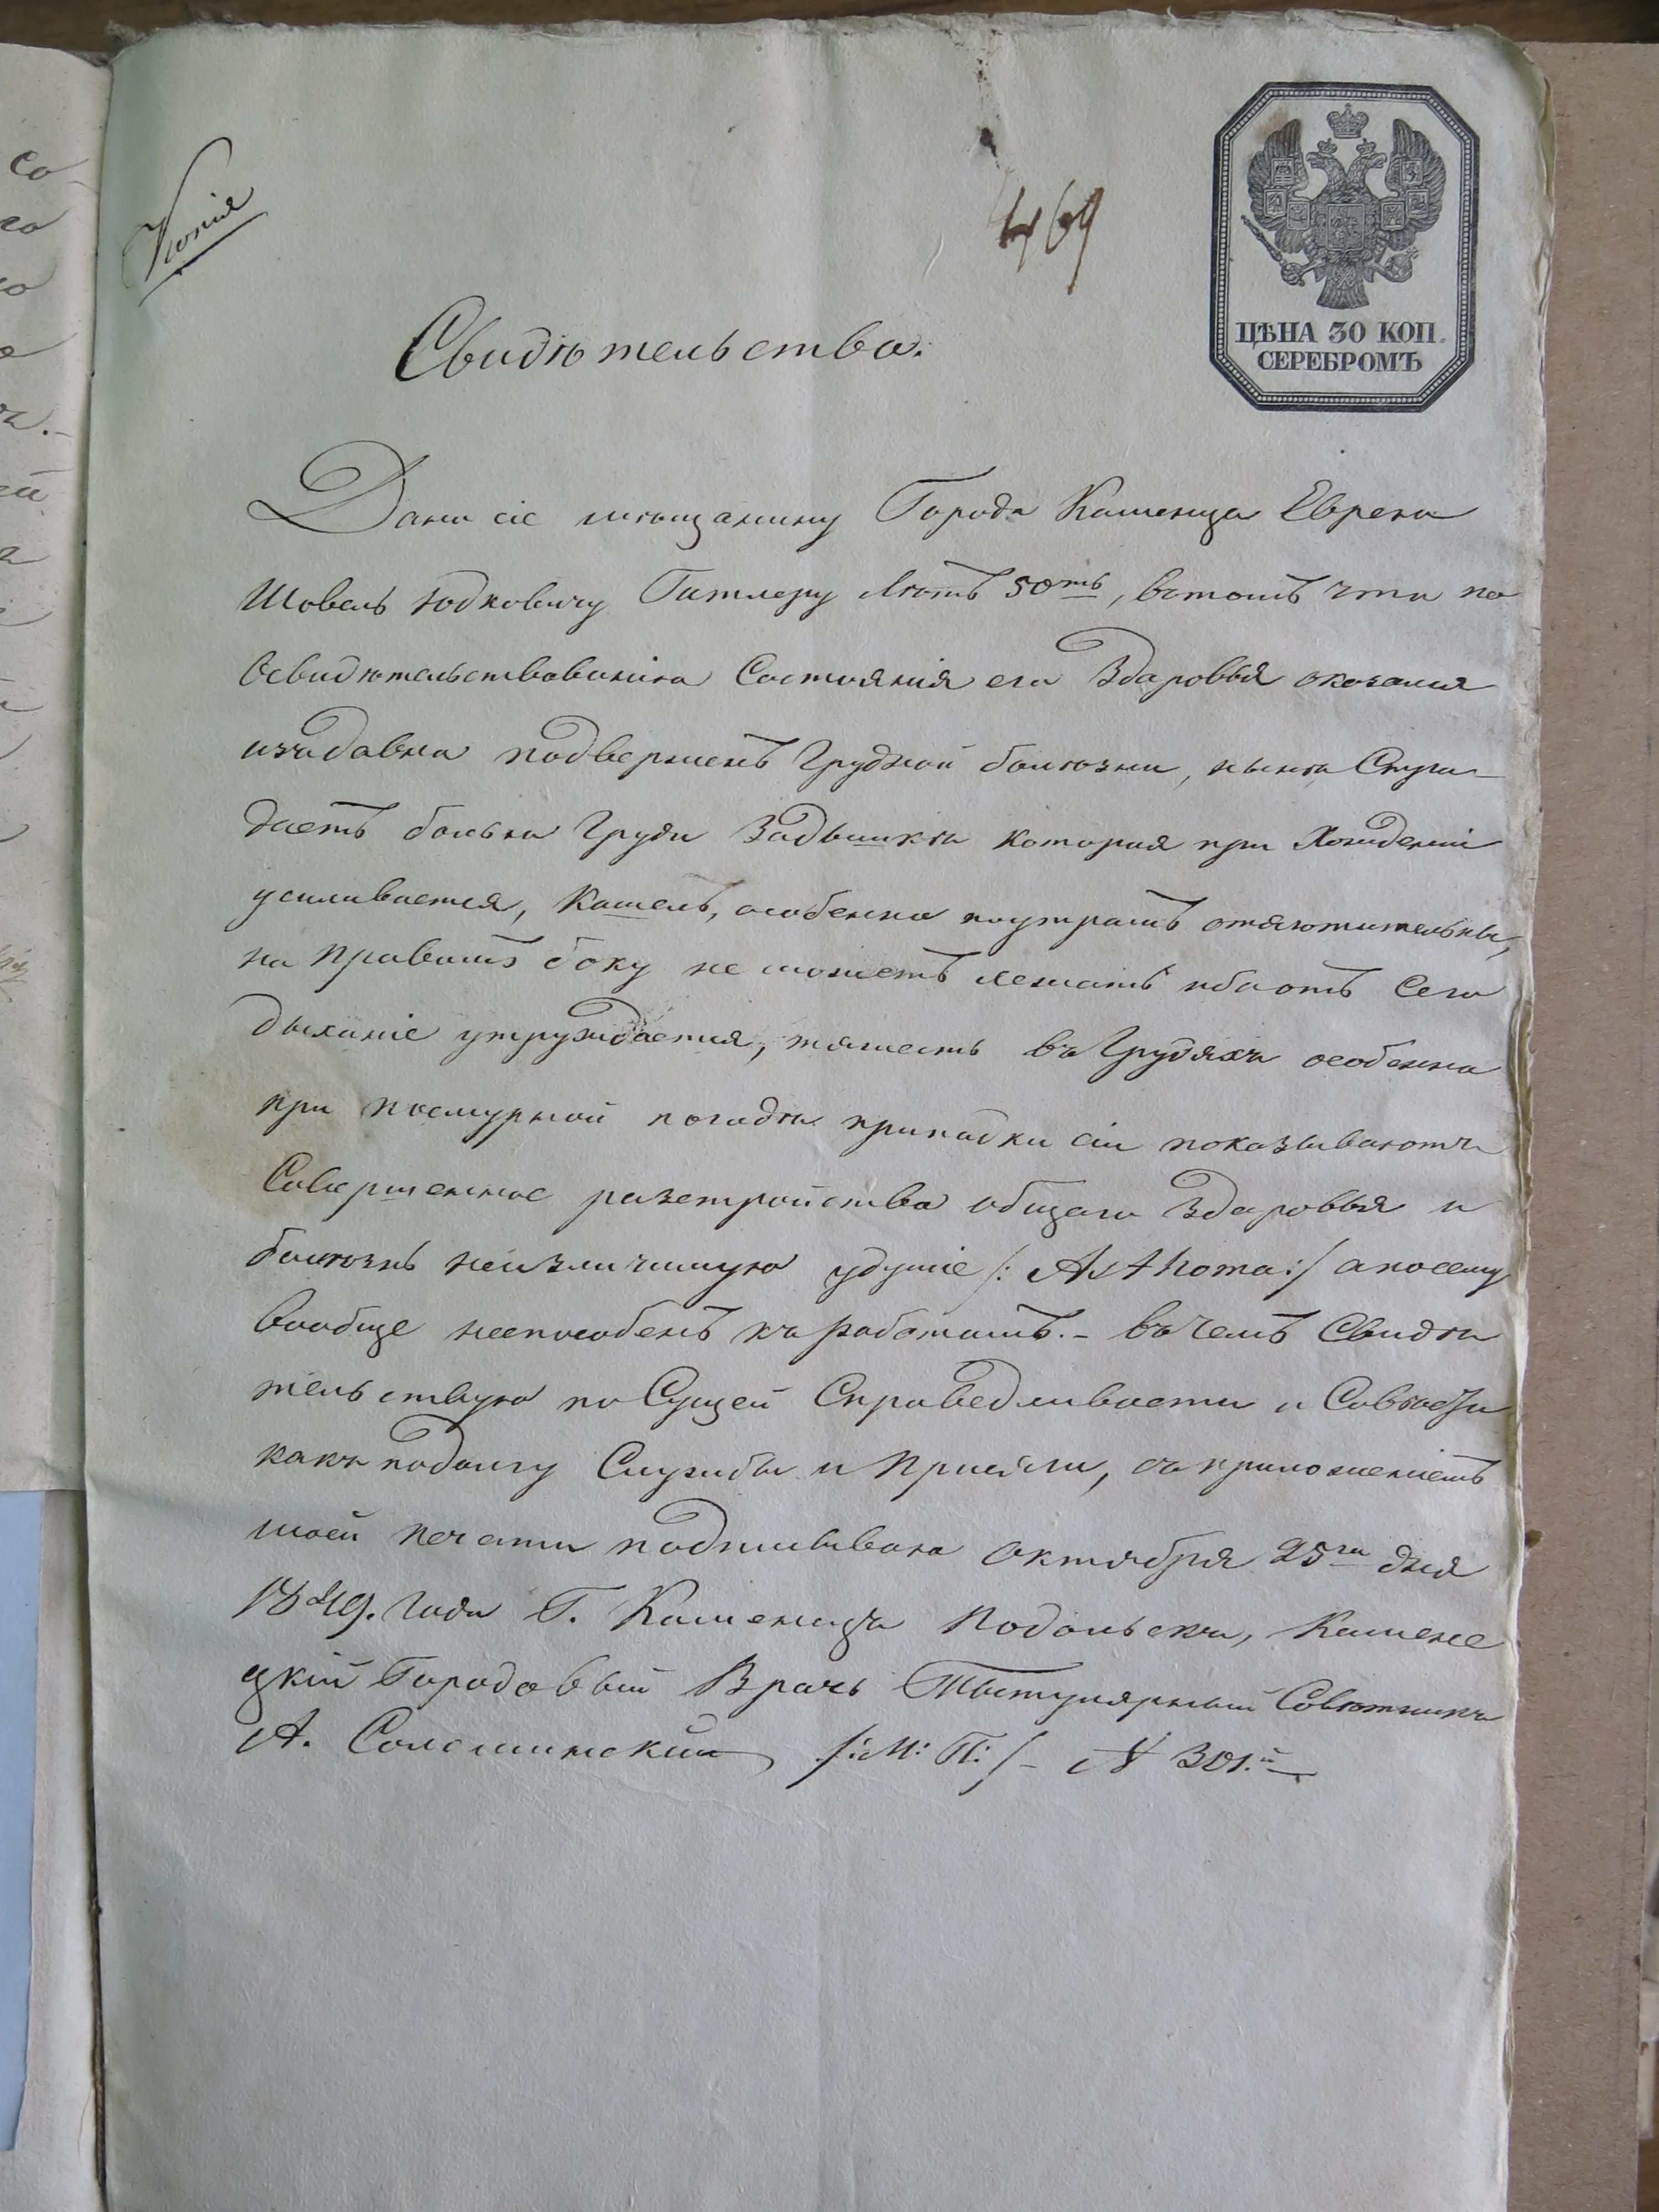 Копія
469
ЦѢНА 30 КОП.
СЕРЕБРОМЪ
Свидѣтельство.
Дано сіе мѣщанину Города Каменца Еврею
Шовель Юдковичу Гитлеру лѣтъ 50тъ, втомъ что по
Освидѣтельствованіи Состоянія его Здаровья оказался
издавна подверженъ Грудной болѣзни, нынѣ Стра-
даетъ болью Груди Задышкою которая при Хожденіи
усиливается, Кашель, особенно поутрамъ отяготительны,
на Правомъ боку не можетъ лежать ибо отъ Сего
дыханіе утруждается, тяжесть въ Грудяхъ особенно
при пасмурной погодѣ припадки сіи показываютъ
Совершенное разстройство общаго Здаровья и
болѣзнь неизличимую удушіе /: Asthoma :/ а посему
вообще неспособенъ къ работамъ. - въ чемъ Свидѣ
тельствую по Сущей Справедливости и Совѣсти
какъ подолгу Службы и Присяги, съ приложеніемъ
моей печати подписываю Октября 25го дня
1849. года Г. Каменецъ Подольскъ, Камене
цкій Городовый Врачь Тытулярный Совѣтникъ
А. /: М: П: / - № 301.й